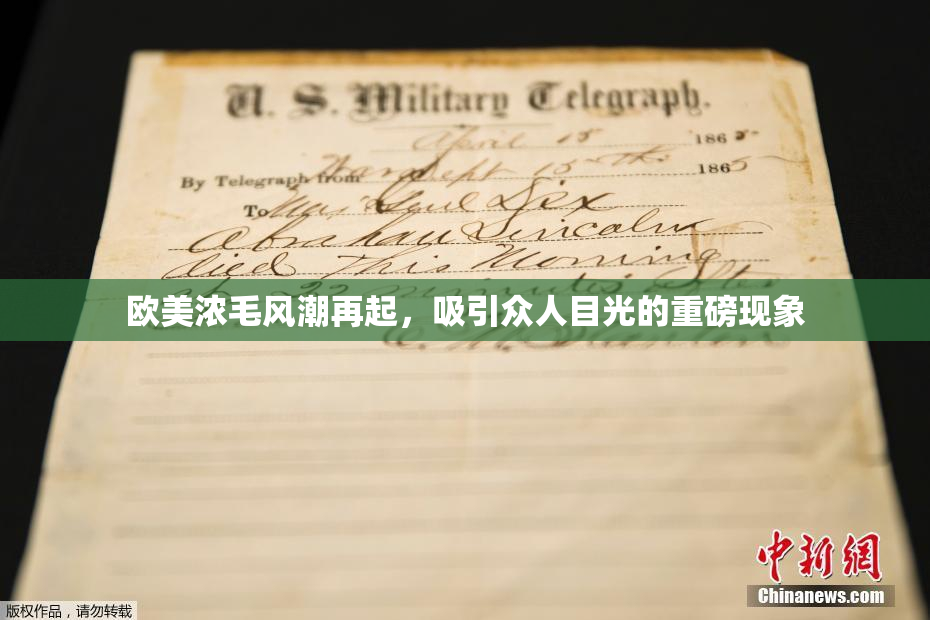 U. S. Military Telegraph.
April 15 1865
By Telegraph from War Dept 15th 1865
To Maj Genl Dix
Abraham Lincoln
died This Morning
at 22 minutes after
欧美浓毛风潮再起，吸引众人目光的重磅现象
E. M. Stanton
中新網
Chinanews.com
版权作品，请勿转载